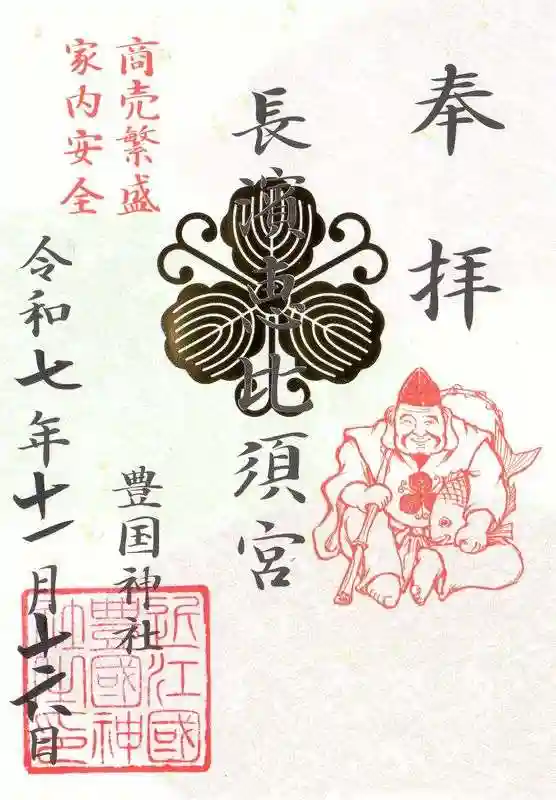 奉拝
長濱恵比須宮
商売繁盛
家内安全
豊国神社
令和七年十一月十六日
近江國
豊國神
社之印